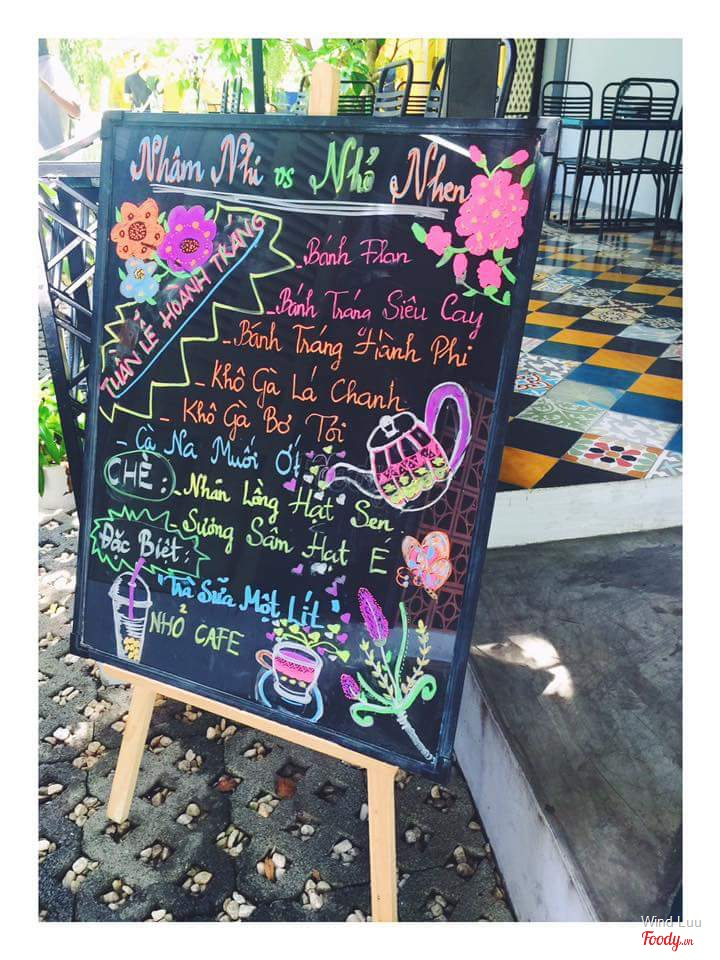 Nhâm Nhi vs Nhỏ Nhen
TUẦN LỄ HOÀNH TRÁNG
- Bánh Flan
- Bánh Tráng Siêu Cay
- Bánh Tráng Hành Phi
- Khô Gà Lá Chanh
- Khô Gà Bơ Tỏi
- Cà Na Muối Ớt
CHÈ :
- Nhãn Lồng Hạt Sen
- Sương Sâm Hạt É
Đặc Biệt :
"Trà Sữa Một Lít"
NHỎ CAFE
Wind Luu
Foody.vn